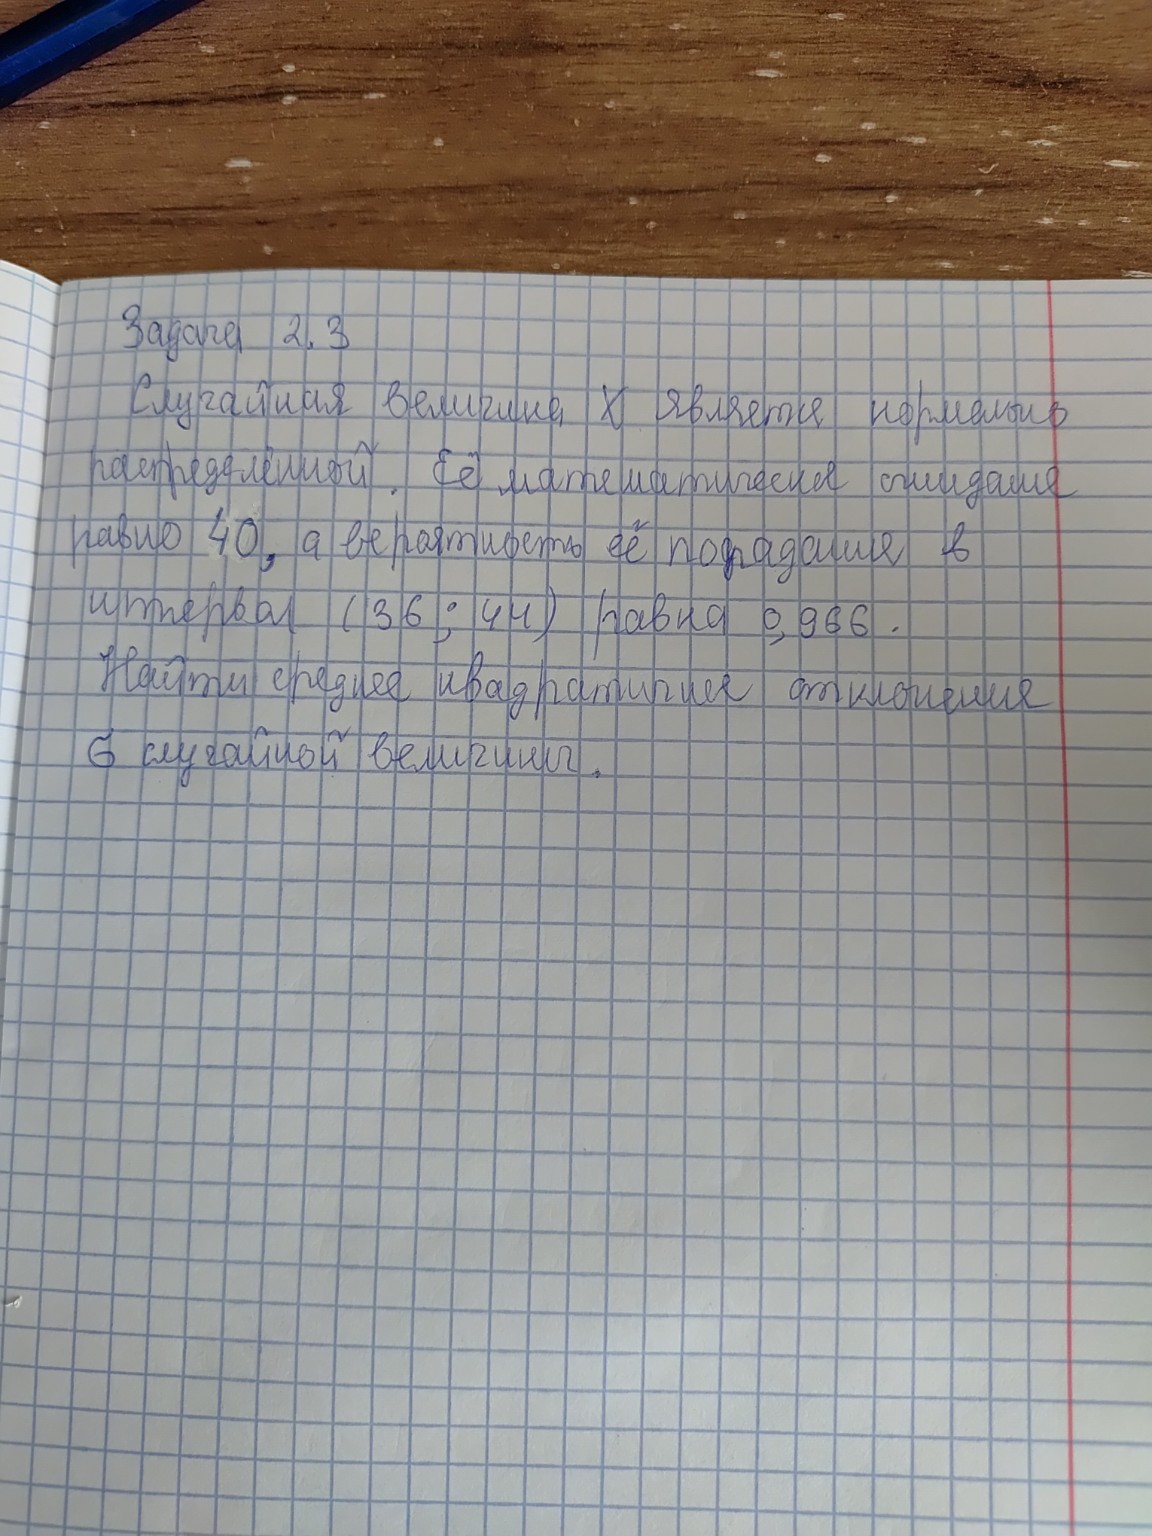 Задача 2.3
Случайная величина X является нормально
распределённой. Её математическое ожидание
равно 40, а вероятность её попадания в
интервал (36; 44) равна 0,966.
Найти среднее квадратическое отклонение
σ случайной величины.